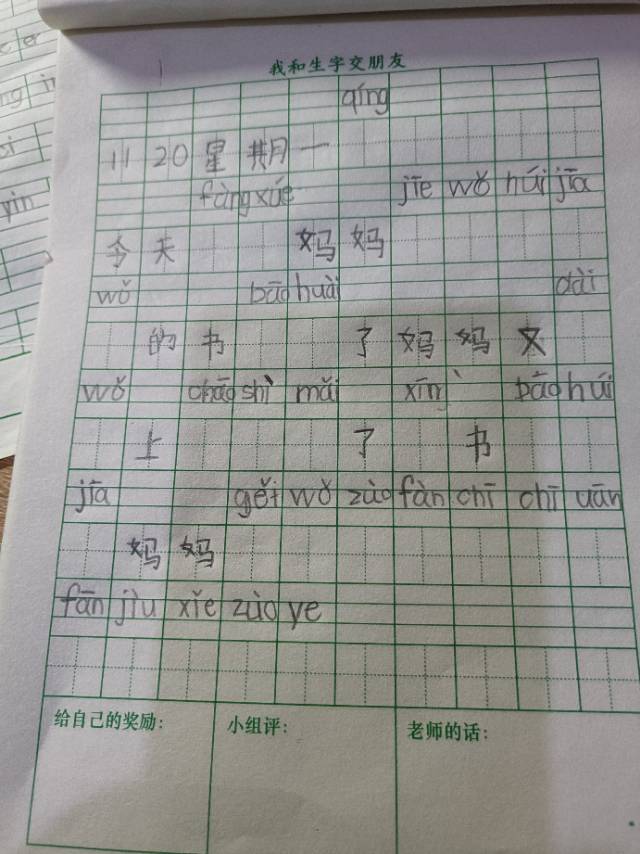 我和生字交朋友
qíng
11 20 星期一
fàng xúe jīe wǒ húi jīa
今天 妈妈
wǒ bāo huài dài
的书 了妈妈又
wǒ chāo shì mǎi xīn bāo húi
上 了 书
jīa gěi wǒ zùo fàn chī chī uān
妈妈
fān jìu xǐe zùo ye
给自己的奖励:
小组评:
老师的话: